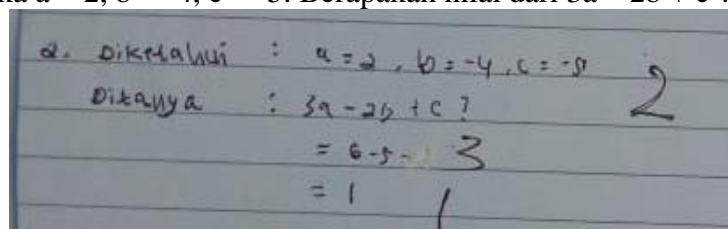 2. Diketahui : a = 2, b = -4, c = -5 2
Ditanya : 3a - 2b + c ?
= 6 - 5 - 3
= 1